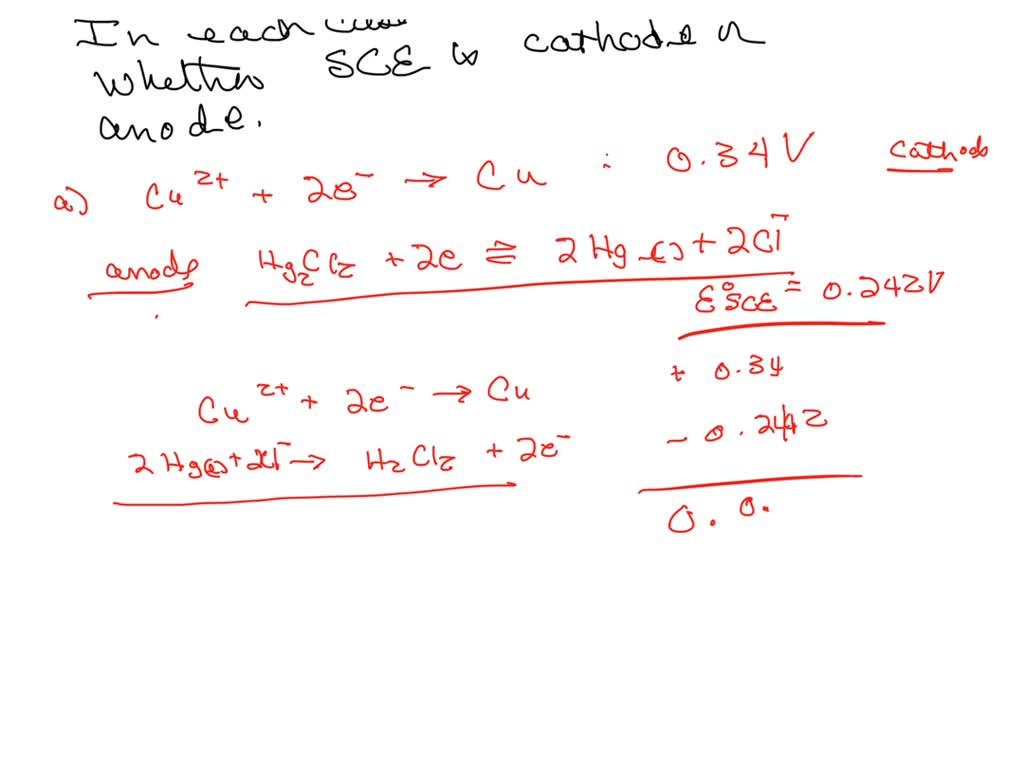 In each case
whether SCE is cathode or
anode.
a) Cu²⁺ + 2e⁻ → Cu : 0.34V cathode
anode Hg₂Cl₂ + 2e ⇌ 2Hg(l) + 2Cl⁻
E°SCE = 0.242V
+ 0.34
Cu²⁺ + 2e⁻ → Cu
- 0.242
2Hg(l) + 2Cl⁻ → H₂Cl₂ + 2e⁻
0.0.